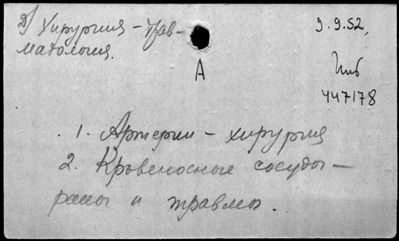 Д) Хирургия - трав-
матология.
9.9.52.
А
447178
1. Артерии - хирургия
2. Кровеносные сосуды -
раны и травмы.